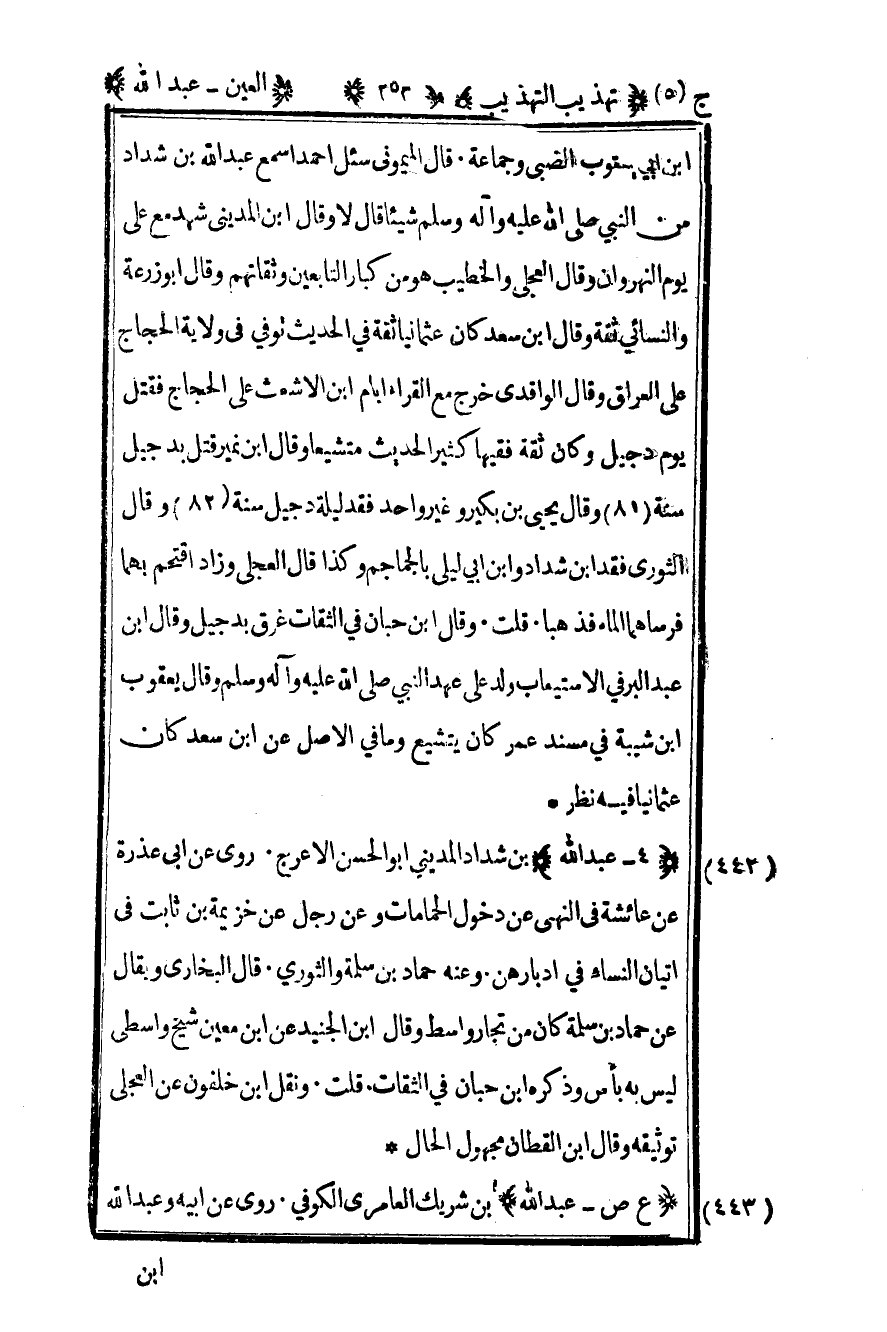 ج (٥) ﴿ تهذيب التهذيب ﴾ ﴿ ٢٥٢ ﴾ ﴿ العين - عبد الله ﴾
ابن ابي يعقوب الضبي وجماعة · قال الميمونى سئل احمد اسمع عبدالله بن شداد
من النبي صلى الله عليه وآله وسلم شيئا قال لا وقال ابن المدينى شهد مع على
يوم النهروان وقال العجلى والخطيب هو من كبار التابعين وثقاتهم وقال ابو زرعة
والنسائي ثقة وقال ابن سعد كان عثمانيا ثقة في الحديث توفي فى ولاية الحجاج
على العراق وقال الواقدى خرج مع القراء ايام ابن الاشعث على الحجاج فقتل
يوم دجيل وكان ثقة فقيها كثير الحديث متشيعا وقال ابن نمير قتل بدجيل
سنة (٨١) وقال يحيى بن بكير و غير واحد فقد ليلة دجيل سنة (٨٢) و قال
الثورى فقد ابن شداد وابن ابي ليلى بالجماجم وكذا قال العجلى وزاد اقتحم بهما
فرساهما الماء فذهبا · قلت · وقال ابن حبان في الثقات غرق بدجيل وقال ابن
عبد البر في الاستيعاب ولد على عهد النبي صلى الله عليه وآله وسلم وقال يعقوب
ابن شيبة في مسند عمر كان يتشيع وما في الاصل عن ابن سعد كان
عثمانيا فيه نظر •
(٤٤٢) ﴿ ٤ - عبدالله ﴾ بن شداد المديني ابو الحسن الاعرج · روى عن ابى عذرة
عن عائشة فى النهى عن دخول الحمامات و عن رجل عن خزيمة بن ثابت فى
اتيان النساء في ادبارهن · وعنه حماد بن سلمة والثوري · قال البخارى ويقال
عن حماد بن سلمة كان من تجار واسط وقال ابن الجنيد عن ابن معين شيخ واسطى
ليس به بأس وذكره ابن حبان في الثقات · قلت · ونقل ابن خلفون عن العجلى
توثيقه وقال ابن القطان مجهول الحال *
(٤٤٣) ﴿ ع ص - عبدالله ﴾ بن شريك العامرى الكوفي · روى عن ابيه وعبد الله
ابن